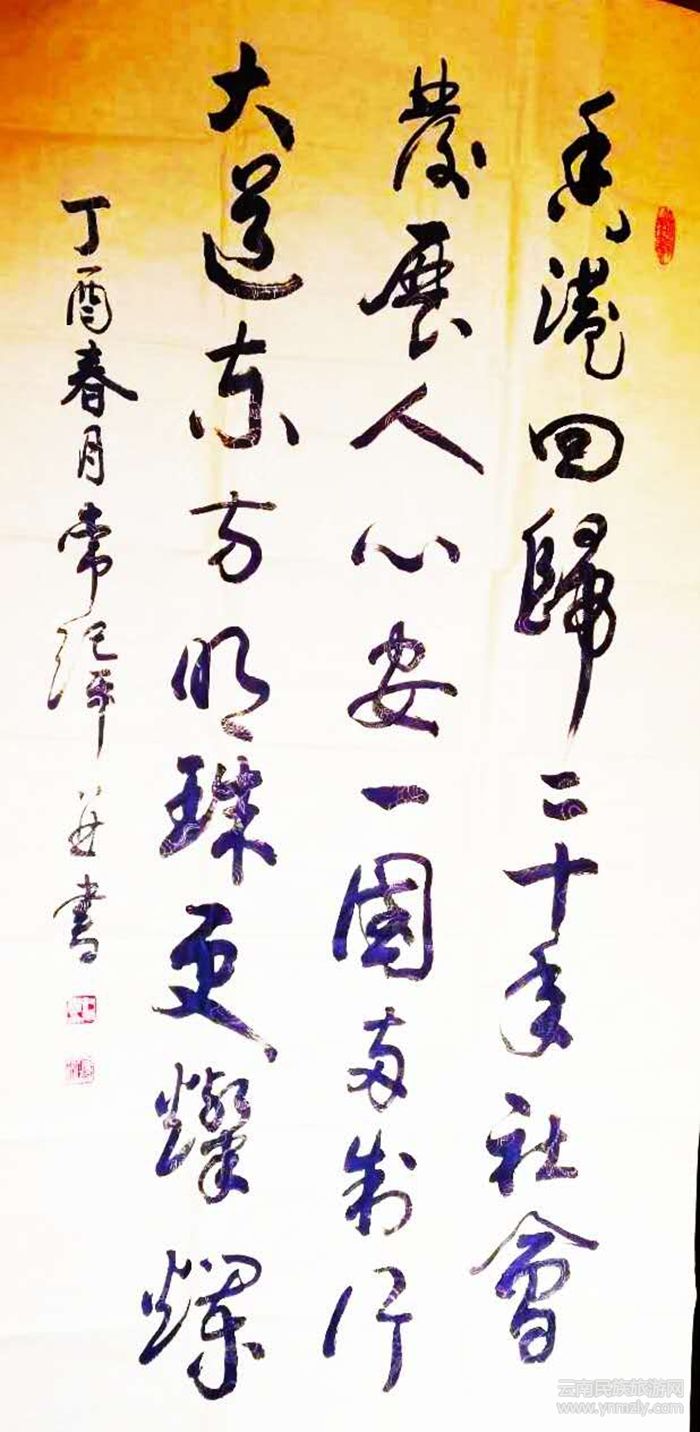 香港回歸二十年社會
發展人心安一國两制行
大道东方明珠更燦爛
丁酉春月常纪平并書
云南民族旅游网
www.ynmzly.com